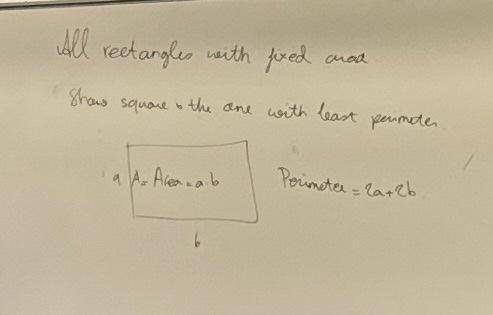 All rectangles with fixed area
Show square is the one with least perimeter
a A = Area = a·b Perimeter = 2a+2b
b